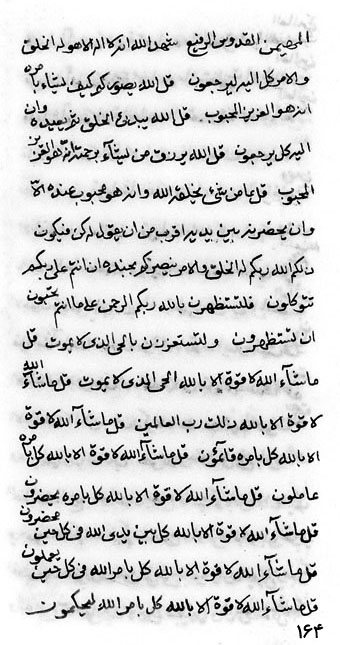 المهيمن القدوس الرفيع شهد الله انه لا اله الا هو له الخلق
والامر كل اليه ليرجعون قل الله يصوركم كيف يشاء بامره
انه هو العزيز المحبوب قل الله يبدئ الخلق ثم يعيده وان
اليه كل يرجعون قل الله يرزق من يشاء برحمته انه هو العزيز
المحبوب قل ما من شئ يخلقه الله وانه هو محبوب عنده الا
وان يحضرنه بين يديه اقرب من ان يقول له كن فيكون
ذلكم الله ربكم له الخلق والامر ينصركم بجنده ان انتم على ربكم
تتوكلون فلتستظهرن بالله ربكم الرحمن على ما انتم تحبون
ان تستظهرون ولتستعززن بالحي الذى لا يموت قل
ماشآء الله لا قوة الا بالله الحي الذى لا يموت قل ماشآء الله
لا قوة الا بالله ذلك رب العالمين قل ماشآء الله لا قوة
الا بالله كل بامره قائمون قل ماشآء الله لا قوة الا بالله كل بامره
عاملون قل ماشآء الله لا قوة الا بالله كل بامره يحضرون
قل ماشآء الله لا قوة الا بالله كل بين يدى الله فى كل حين محضرون
قل ماشآء الله لا قوة الا بالله كل بامر الله فى كل حين يعملون
قل ماشآء الله لا قوة الا بالله كل بامر الله ليحكمون
۱۶۴